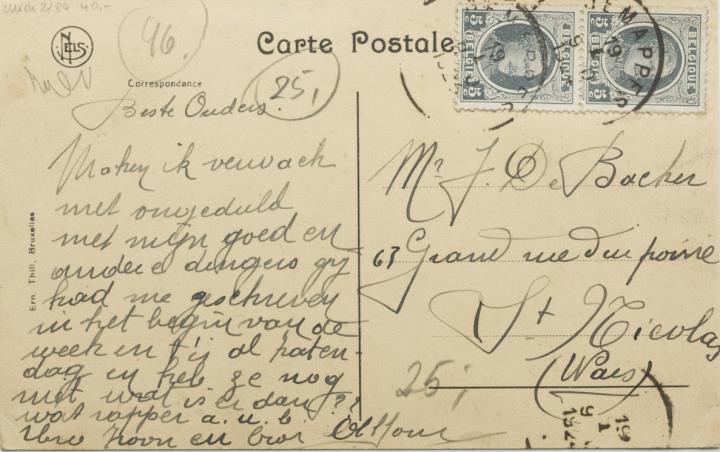 40,-
NELS
96.
Carte Postale
Correspondance
25,
Beste Ouders
Maken ik verwach
met ongeduld
met mijn goed en
andere dingens gij
had me geschreven
in het begin van de
week en t'is al zaten-
dag en heb ze nog
niet wat is er dan??
wat rapper a. u. b.
Uwe zoon en broer
Ern. Thill, Bruxelles
5c BELGIQUE 5c
5c BELGIQUE 5c
JEMAPPES
Mr J. De Backer
63 Grand rue du
St Nicolas
(Waes)
25,
19